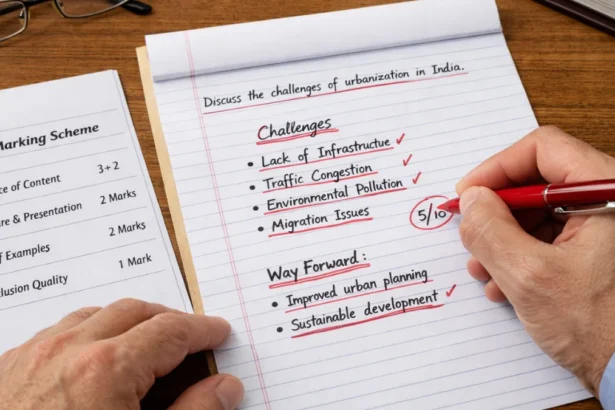 Marking Scheme
ce of Content 3+2
re & Presentation 2 Marks
f Examples 2 Marks
clusion Quality 1 Mark
Discuss the challenges of urbanization in India.
Challenges
• Lack of Infrastructue ✓
• Traffic Congestion ✓
• Environmental Pollution ✓
• Migration Issues
5/10
Way Forward :
• Improved urban planning
• Sustainable development ✓